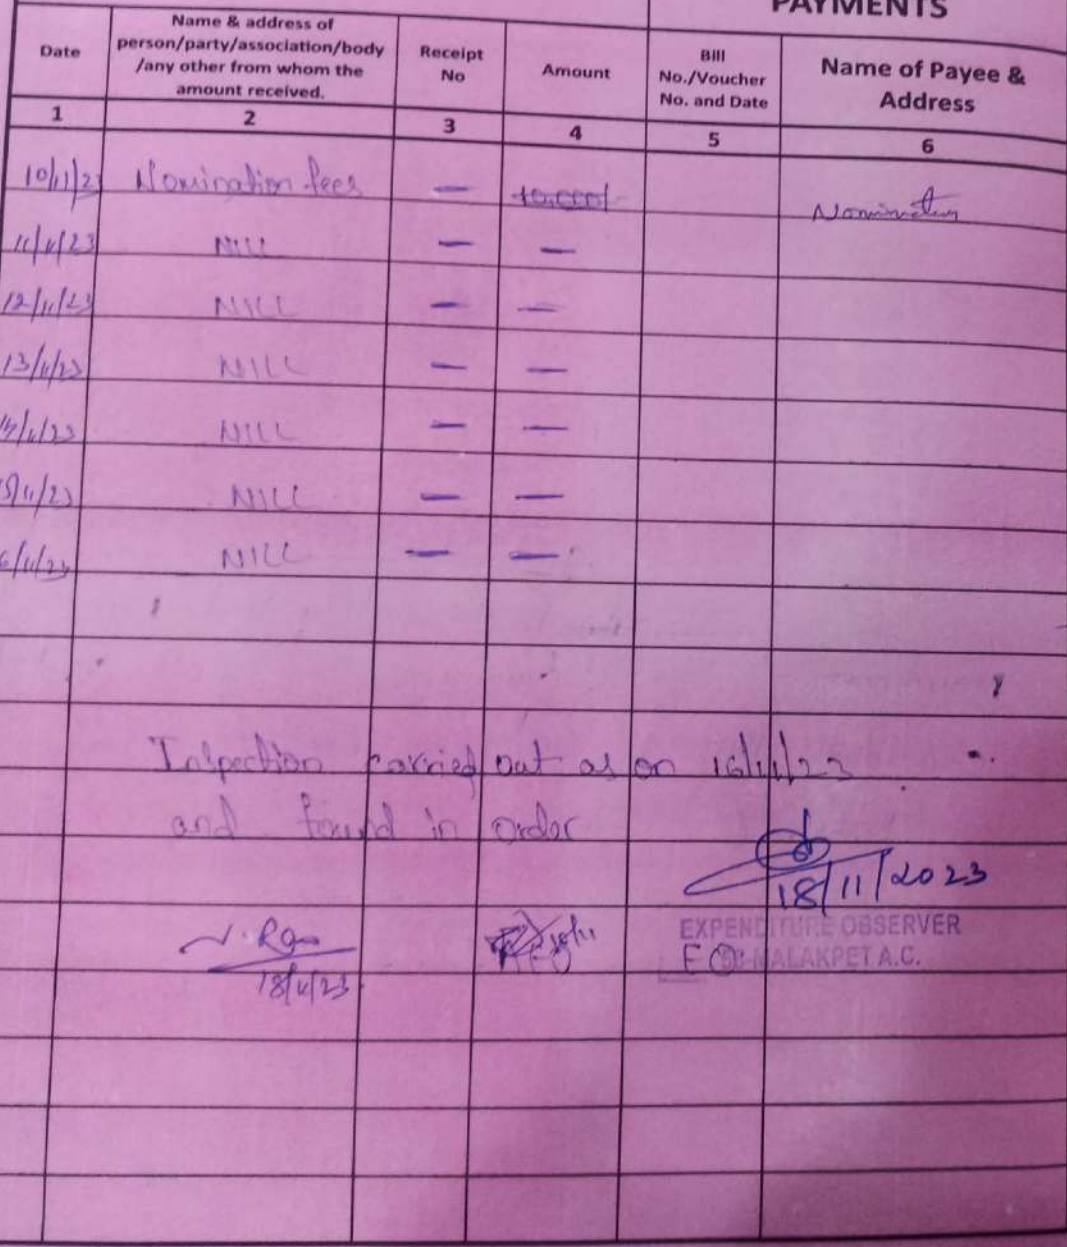 PAYMENTS
Date
Name & address of
person/party/association/body
/any other from whom the
amount received.
Receipt
No
Amount
Bill
No./Voucher
No. and Date
Name of Payee &
Address
1 2 3 4 5 6
10/11/23 Nomination fees — 10,000/-
11/11/23 NILL — —
12/11/23 NILL — —
13/11/23 NILL — —
14/11/23 NILL — —
15/11/23 NILL — —
6/11/23 NILL — —
Inspection carried out as on 16/11/23
and found in order
18/11/2023
EXPENDITURE OBSERVER
MALAKPET A.C.
18/11/23
18/11